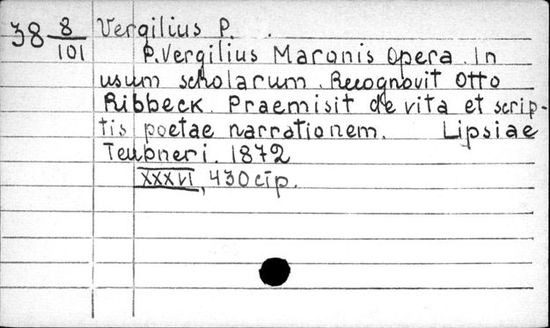 38 8/101 Vergilius P.
P. Vergilius Maronis Opera. In
usum scholarum. Recognovit Otto
Ribbeck. Praemisit de vita et scrip-
tis poetae narrationem. Lipsiae
Teubneri. 1872
XXXVI, 430 стр.